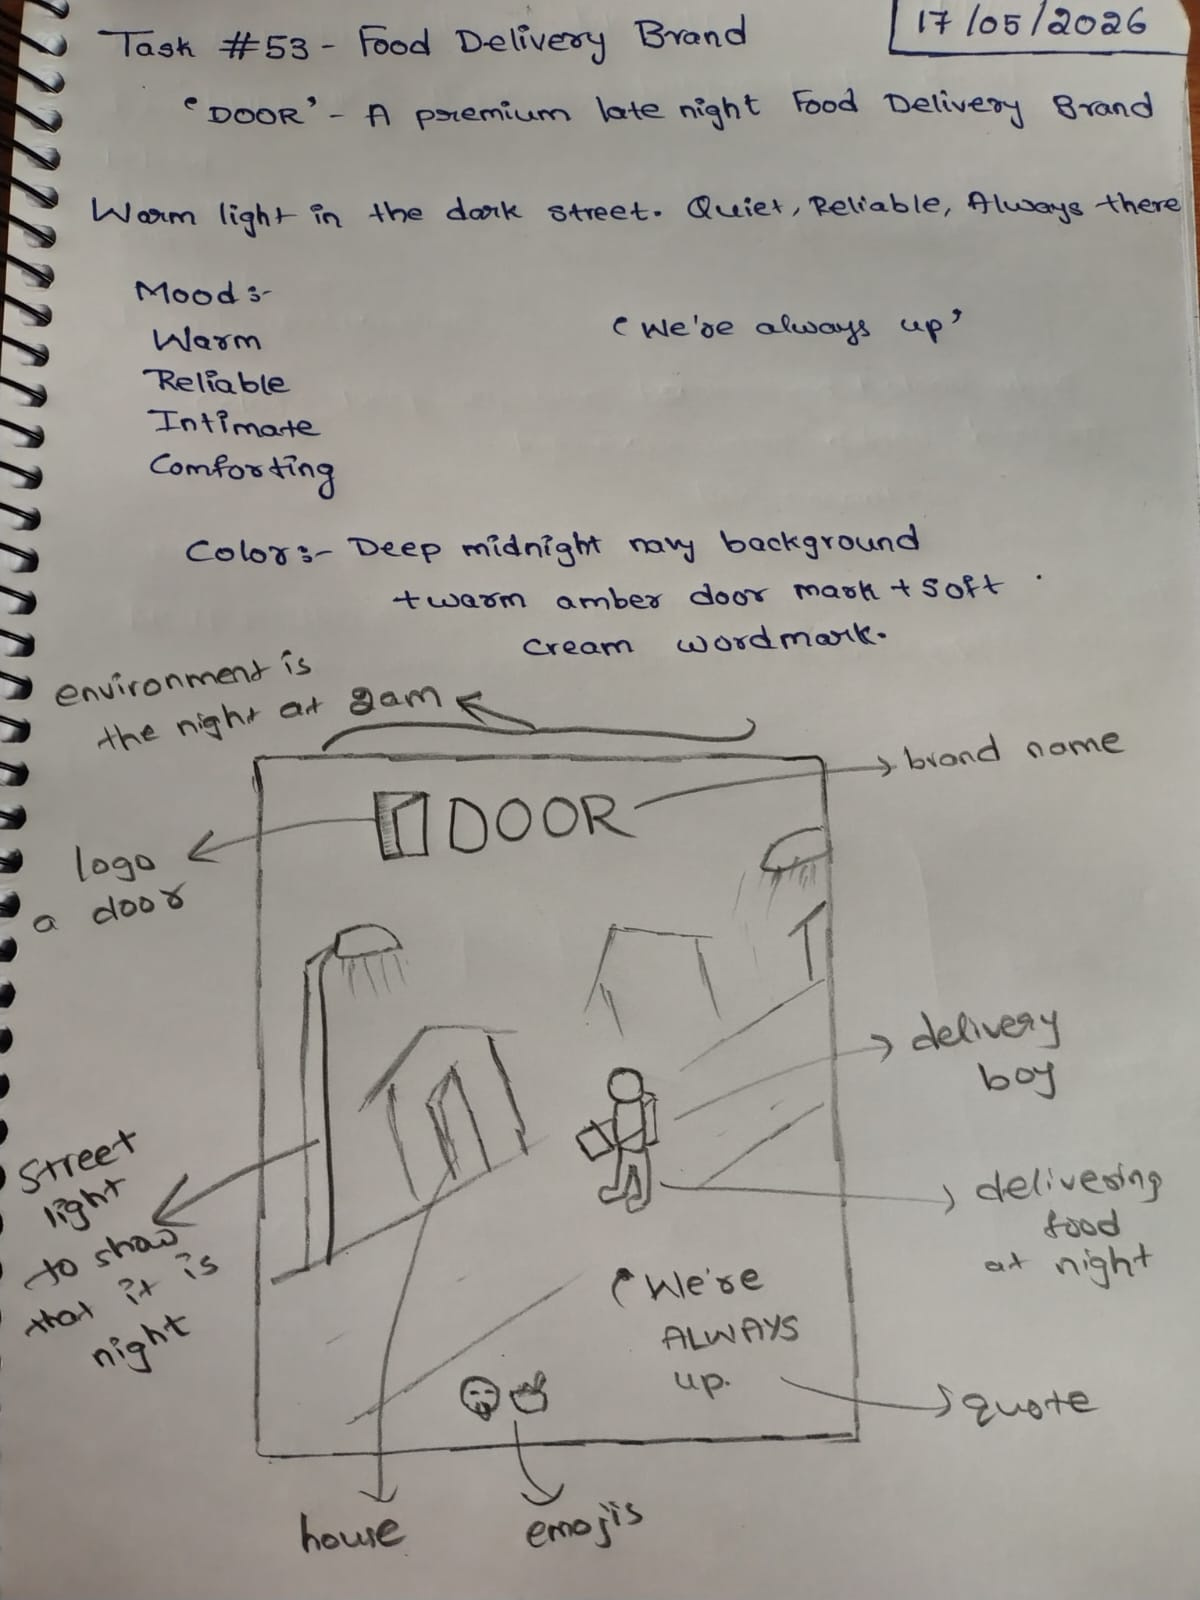 17/05/2026
Task #53 - Food Delivery Brand
'DOOR' - A premium late night Food Delivery Brand
Warm light in the dark street. Quiet, Reliable, Always there
Mood :-
Warm
Reliable
Intimate
Comforting
'We're always up'
Color :- Deep midnight navy background
+ warm amber door mark + soft
cream wordmark.
environment is
the night at 2am
brand name
DOOR
logo
a door
delivery
boy
street
light
to show
that it is
night
delivering
food
at night
'We're
ALWAYS
up.
quote
house
emojis